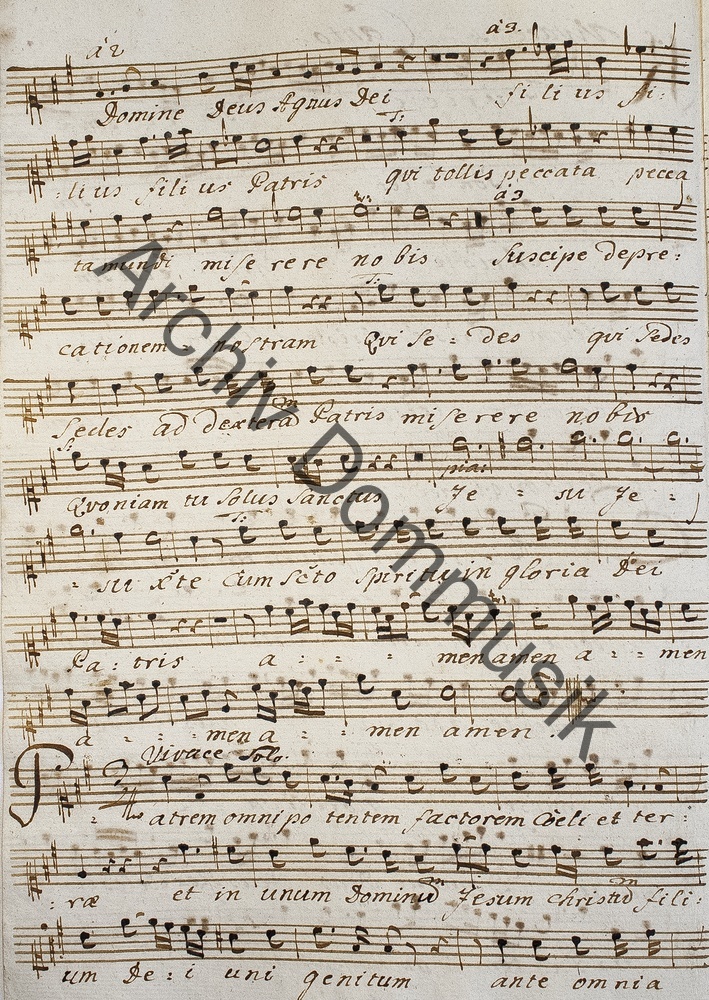 à 2 à 3.
Domine Deus Agnus Dei filius fi:
:lius filius Patris qui tollis peccata pecca
à 3
ta mundi miserere nobis Suscipe depre:
cationem nostram Qui se: des qui sedes
sedes ad dexteram Patris miserere nobis
pia:
Quoniam tu solus Sanctus Je - su Je -
- su xte Cum Scto Spiritu in gloria Dei
Pa: tris a : : : men amen a : : men
a : : : men a : : men amen.
Vivace Solo.
Patrem omnipotentem factorem Coeli et ter:
:ræ et in unum Dominum Jesum christum fili:
um De: i uni genitum ante omnia
Archiv Dommusik